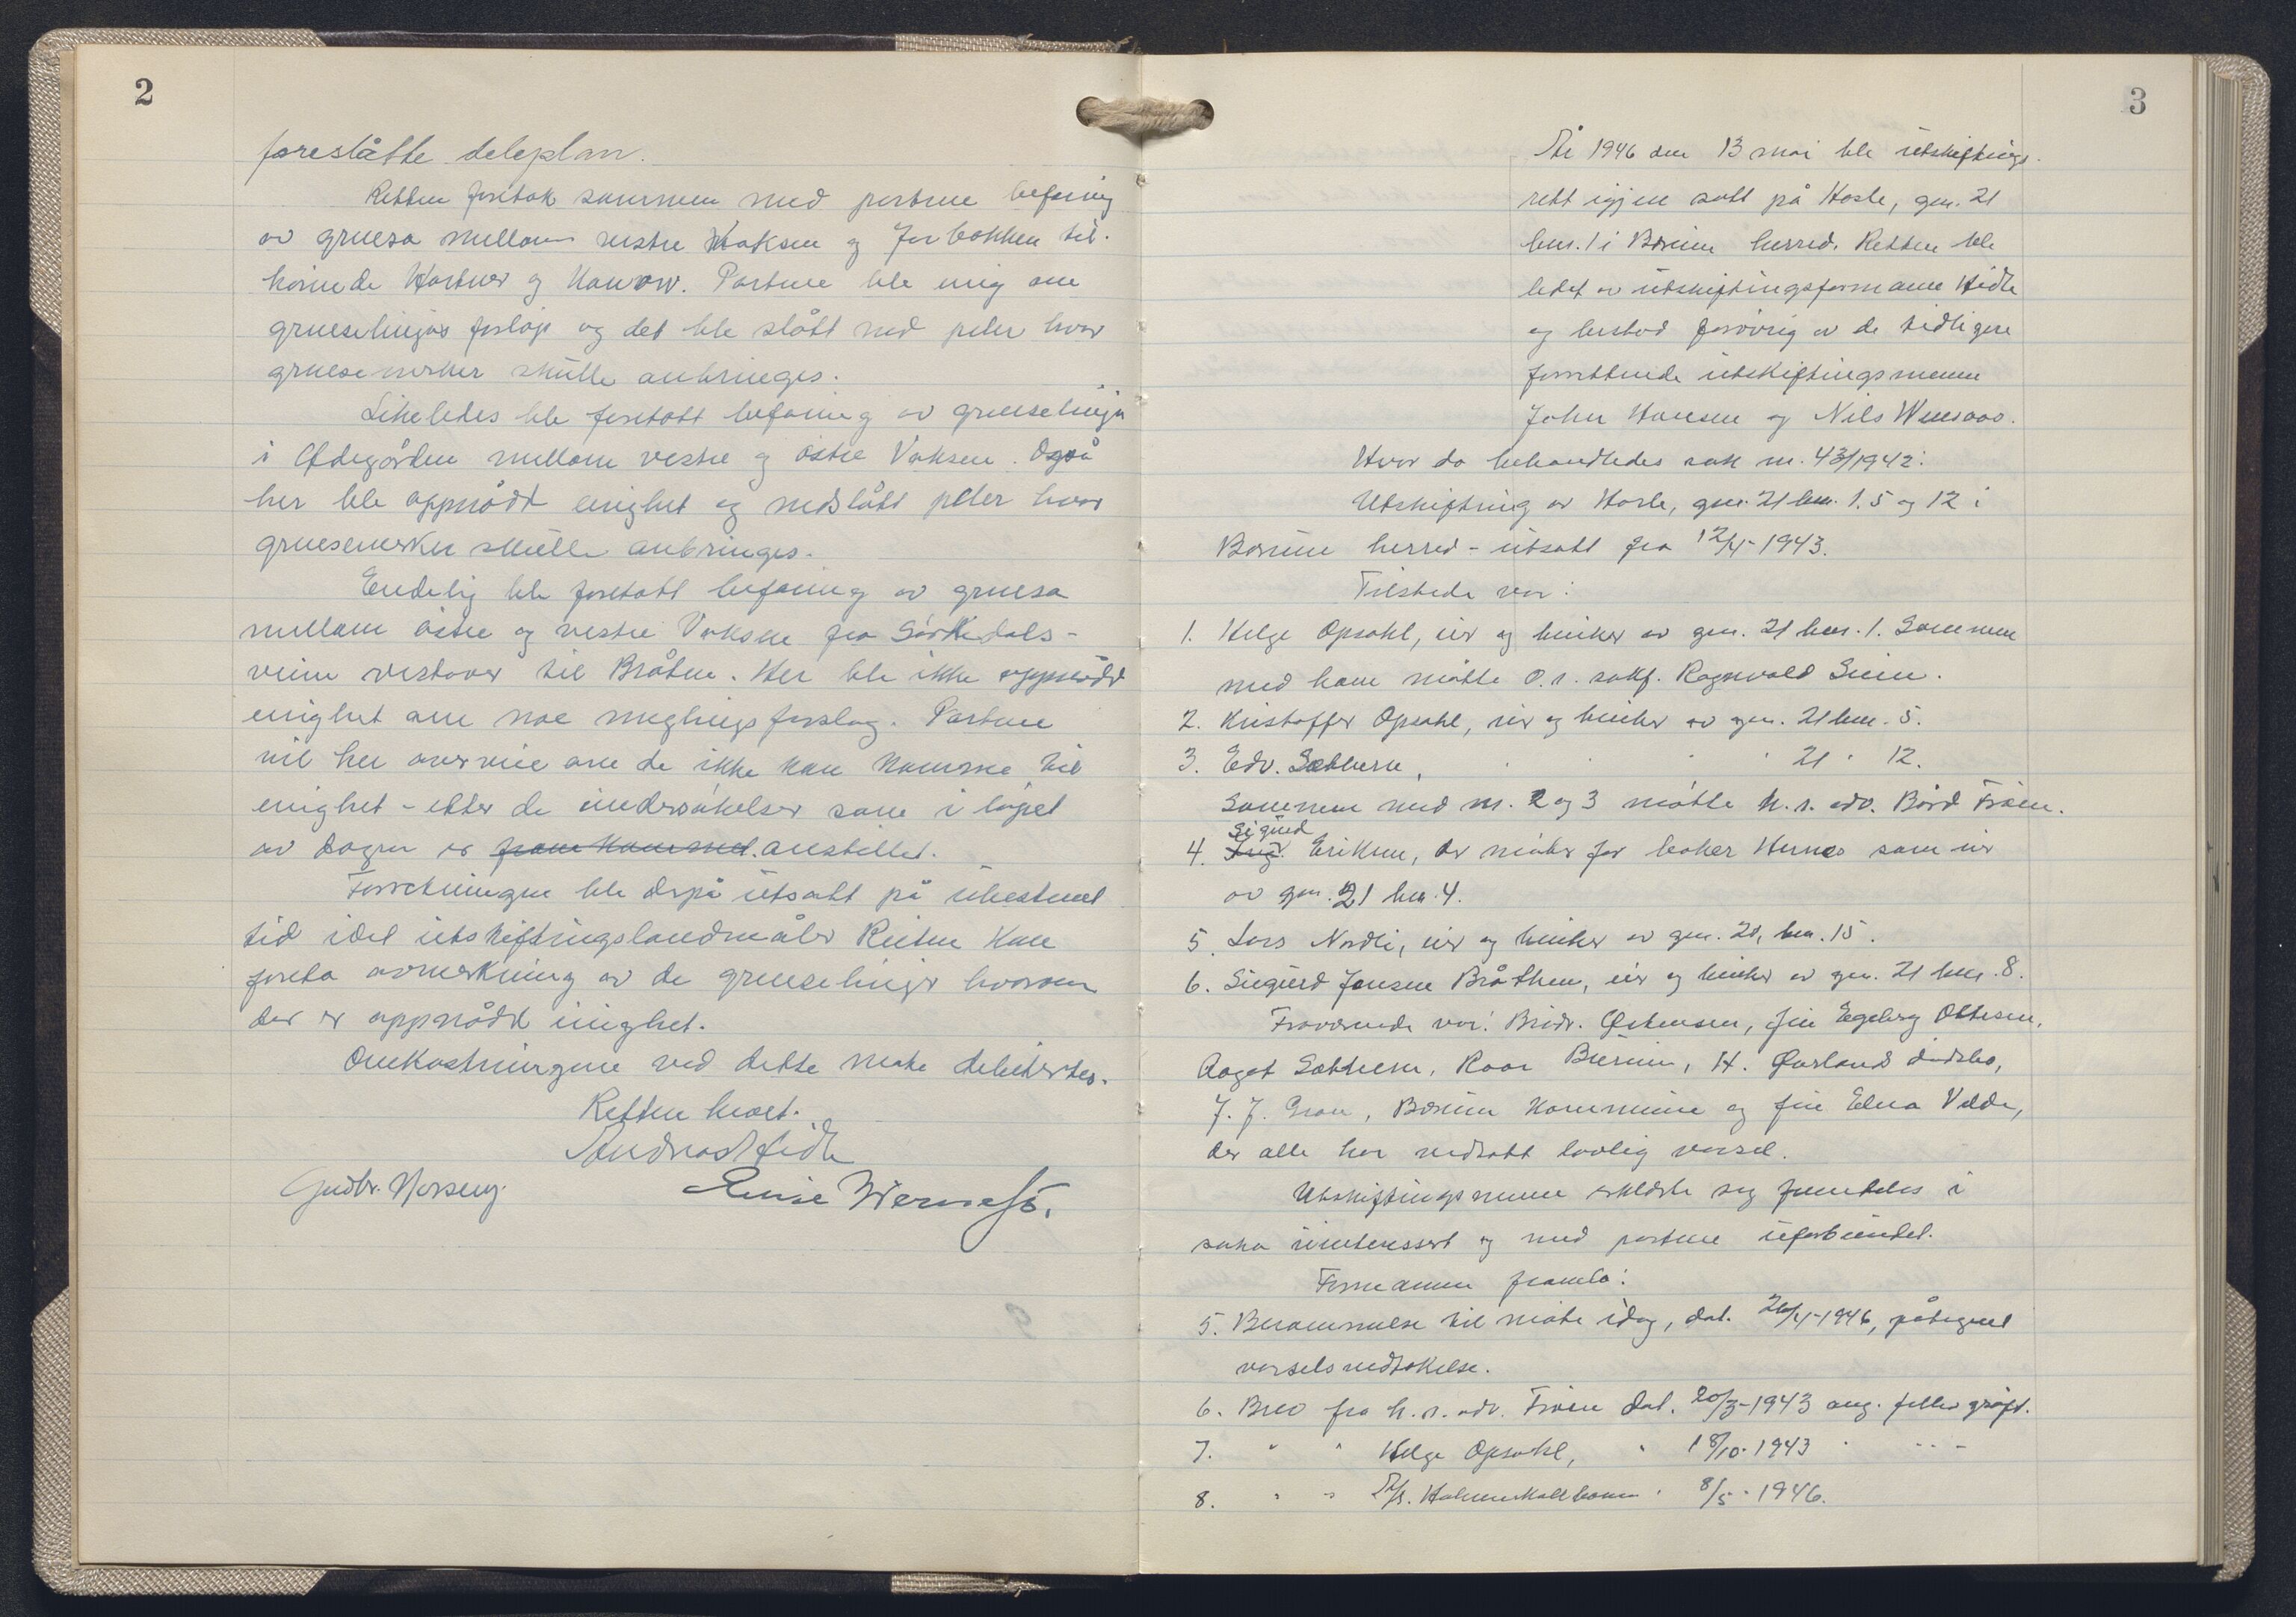 2
foreslåtte deleplan.
Retten foretok sammen med partene befaring
av grensa mellom vestre Voksen og Jarbakken til-
hørende Hartner og Konow. Partene ble enig om
grenselinjas forløp og det ble slått ned peler hvor
grensemerker skulle anbringes.
Likeledes ble foretatt befaring av grenselinja
i Ødegården mellom vestre og østre Voksen. Også
her ble oppnådd enighet og nedslått peler hvor
grensemerker skulle anbringes.
Endelig ble foretatt befaring av grensa
mellom østre og vestre Voksen fra Sørkedals-
veien vestover til Bråten. Her ble ikke oppnådd
enighet om noe meglingsforslag. Partene
vil her overveie om de ikke kan komme til
enighet - etter de undersøkelser som i løpet
av dagen er frem kommet. anstillet.
Forretningen ble derpå utsatt på ubestemt
tid idet utskiftingslandmåler Reiten kan
foreta avmerkning av de grenselinjer hvorom
der er oppnådd enighet.
Omkostningene ved dette møte debitertes.
Retten hevet.
Andreas Hidle
Gudbr. Norseng. Einar Wernesø.
3
År 1946 den 13 mai ble utskiftings-
rett igjen satt på Hosle, gnr. 21
bnr. 1 i Bærum herred. Retten ble
ledet av utskiftingsformann Hidle
og besto forøvrig av de tidligere
forrettende utskiftingsmenn
John Hansen og Nils Wensaas.
Hvor da behandledes sak nr. 43/1942:
Utskiftning av Hosle, gnr. 21 bnr. 1, 5 og 12 i
Bærum herred - utsatt fra 12/4-1943.
Tilstede var:
1. Helge Opsahl, eier og bruker av gnr. 21 bnr. 1. Sammen
med ham møtte o.r. sakf. Ragnvald Siem.
2. Kristoffer Opsahl, eier og bruker av gnr. 21 bnr. 5.
3. Edv. Sætheren, " " " 21 " 12.
Sammen med nr. 2 og 3 møtte h.r. adv. Bård Frøen.
Sigurd
4. Eriksen, der møter for baker Hernes som eier
av gnr. 21 bnr. 4.
5. Lars Nordli, eier og bruker av gnr. 21, bnr. 15.
6. Sigurd Jansen Bråthen, eier og bruker av gnr. 21 bnr. 8.
Fraværende var: Brødr. Østensen, fru Egeberg Ottesen,
Aagot Sætheren, Roar Bierum, H. Øverlands dødsbo,
J. J. Grau, Bærum kommune og fru Edna Velde,
der alle har vedtatt lovlig varsel.
Utskiftingsmenn erklærte seg fremdeles i
saka uinteressert og med partene uforbundet.
Formannen framla:
5. Berammelse til møte idag, dat. 26/4-1946, påtegnet
varselsvedtakelse.
6. Brev fra h.r. adv. Frøen dat. 20/3-1943 ang. felles grøft.
7. " " Helge Opsahl, " 18/10-1943 " - - -
8. " " A/S. Holmenkollbanen " 8/5-1946.